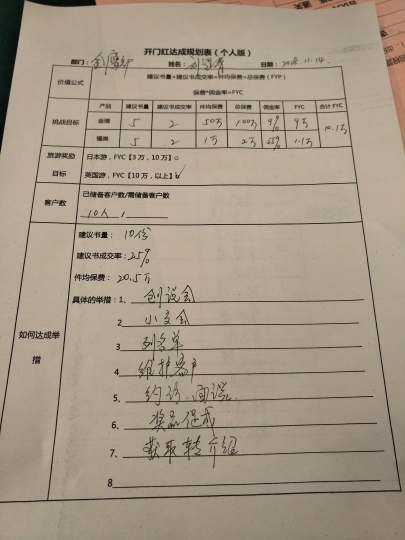 开门红达成规划表（个人版）
部门： 姓名： 日期：2018.11.14.
价值公式
建议书量*建议书成交率*件均保费=总保费（FYP）
保费*佣金率=FYC
挑战目标
产品 建议书量 建议书成交率 件均保费 总保费 佣金率 FYC 合计 FYC
金瑞 5 2 50万 100万 9% 9万 10.1万
福类 5 2 1万 2万 55% 1.1万
旅游奖励目标
日本游，FYC【3万，10万）□
英国游，FYC【10万，以上】☑
客户数
已储备客户数/需储备客户数
10人 /
如何达成举措
建议书量： 10份
建议书成交率：25%
件均保费： 20.5万
具体的举措：1、创说会
2 小交会
3 列名单
4 维护客户
5、约访.面谈.
6、奖品促成
7、获取转介绍
8